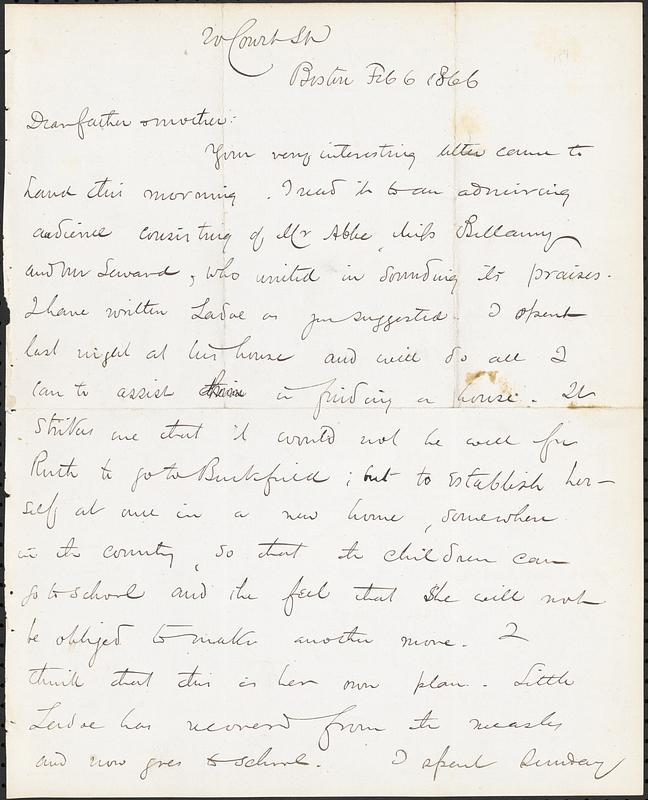 20 Court St
Boston Feb 6 1866
Dear father & mother:
Your very interesting letter came to
hand this morning. I read it to an admiring
audience consisting of Mr Abbe, Miss Bellamy
and Mr Seward, who united in sounding its praises.
I have written Ladoe as you suggested. I spent
last night at his house and will do all I
can to assist in finding a house. It
strikes me that it would not be well for
Ruth to go to Buckfield; but to establish her-
self at once in a new home, somewhere
in the country, so that the children can
go to school and she feel that she will not
be obliged to make another move. I
think that this is her own plan. Little
Ladoe has recovered from the measles
and now goes to school. I spent Sunday